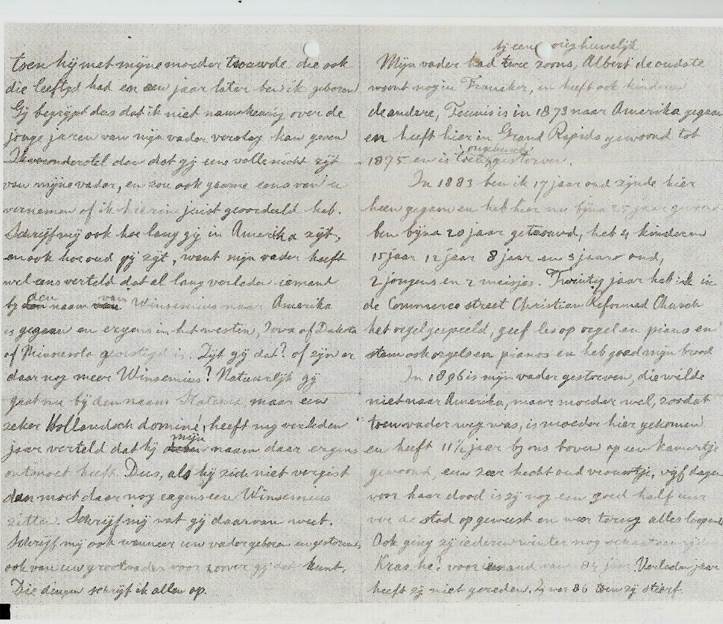 toen hij met mijne moeder trouwde die ook
die leeftyd had en een jaar later ben ik geboren
Gij begrijpt dus dat ik niet nauwkeurig over de
jonge jaren van mijn vader verslag kan geven
Ik veronderstel dan dat gij eens volle nicht zijt
van mijne vader, en zou ook gaarne eens van u
vernemen of ik hierin juist geoordeeld heb.
Schrijf mij ook hoe lang gij in Amerika zijt,
en ook hoe oud gij zijt, want mijn vader heeft
wel eens verteld dat al lang verleden iemant
bij den naam van Winsemius naar Amerika
is gegaan en ergens in het westen, Iowa of Dakota
of Minnesota gevestigd is. Zijt gij dat? of zijn er
daar nog meer Winsemius? Natuurlijk gij
gaat nu bij den naam maar een
zeker Hollandsch dominé, heeft mij verleden
jaar verteld dat hij mijn naam daar ergens
ontmoet heeft. Dus, als hij zich niet vergist
dan moet daar nog ergens een Winsemius
zitten. Schrijf mij wat gij daarvan weet.
Schrijf mij ook wanneer uw vader geboren en gestorven,
ook van uw grootvader voor zoover gij dat kunt.
Die dingen schrijf ik allen op.
bij een vorig huwelijk
Mijn vader had twee zoons, Albert de oudste
woont nog in Franeker, en heeft ook kinderen
de andere, Teunis is in 1873 naar Amerika gegaan
en heeft hier in Grand Rapids gewoond tot
1875 en is toen ongehuwd gestorven.
In 1883 ben ik 17 jaar oud zijnde hier
heen gegaan en heb hier nu bijna 25 jaar gewoond
ben bijna 20 jaar getrouwd, heb 4 kinderen
15 jaar 12 jaar 8 jaar en 3 jaar oud,
2 jongens en 2 meisjes. Twintig jaar heb ik in
de Commerce street Christian Reformed Church
het orgel gespeeld, geef les op orgel en piano en
stem ook orgels en pianos en heb goed mijn brood
In 1896 is mijn vader gestorven, die wilde
niet naar Amerika, maar moeder wel, zoodat
toen vader weg was, is moeder hier gekomen
en heeft 11½ jaar bij ons boven op een kamertje
gewoond, een zeer hecht oud vrouwtje, vijf dagen
voor haar dood is zij nog een goed half uur
ver de stad op geweest en weer terug alles loopend
Ook ging zij iederen winter nog
Kras, he! voor iemand van 84 jaar Verleden jaar
heeft zij niet gereden. Zij was 86 toen zij stierf.